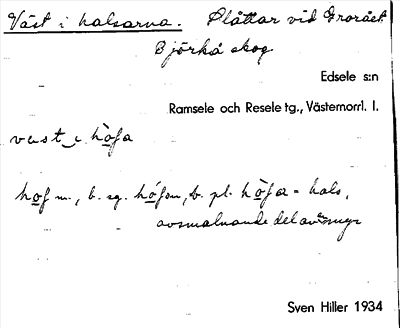 Väst i halsarna. Slåttar vid Groråset
Björkå skog
Edsele s:n
Ramsele och Resele tg., Västernorrl. l.
vest i hòfa
hof m., b. sg. hófen, b. pl. hòfa = hals,
avsmalnande del av myr
Sven Hiller 1934